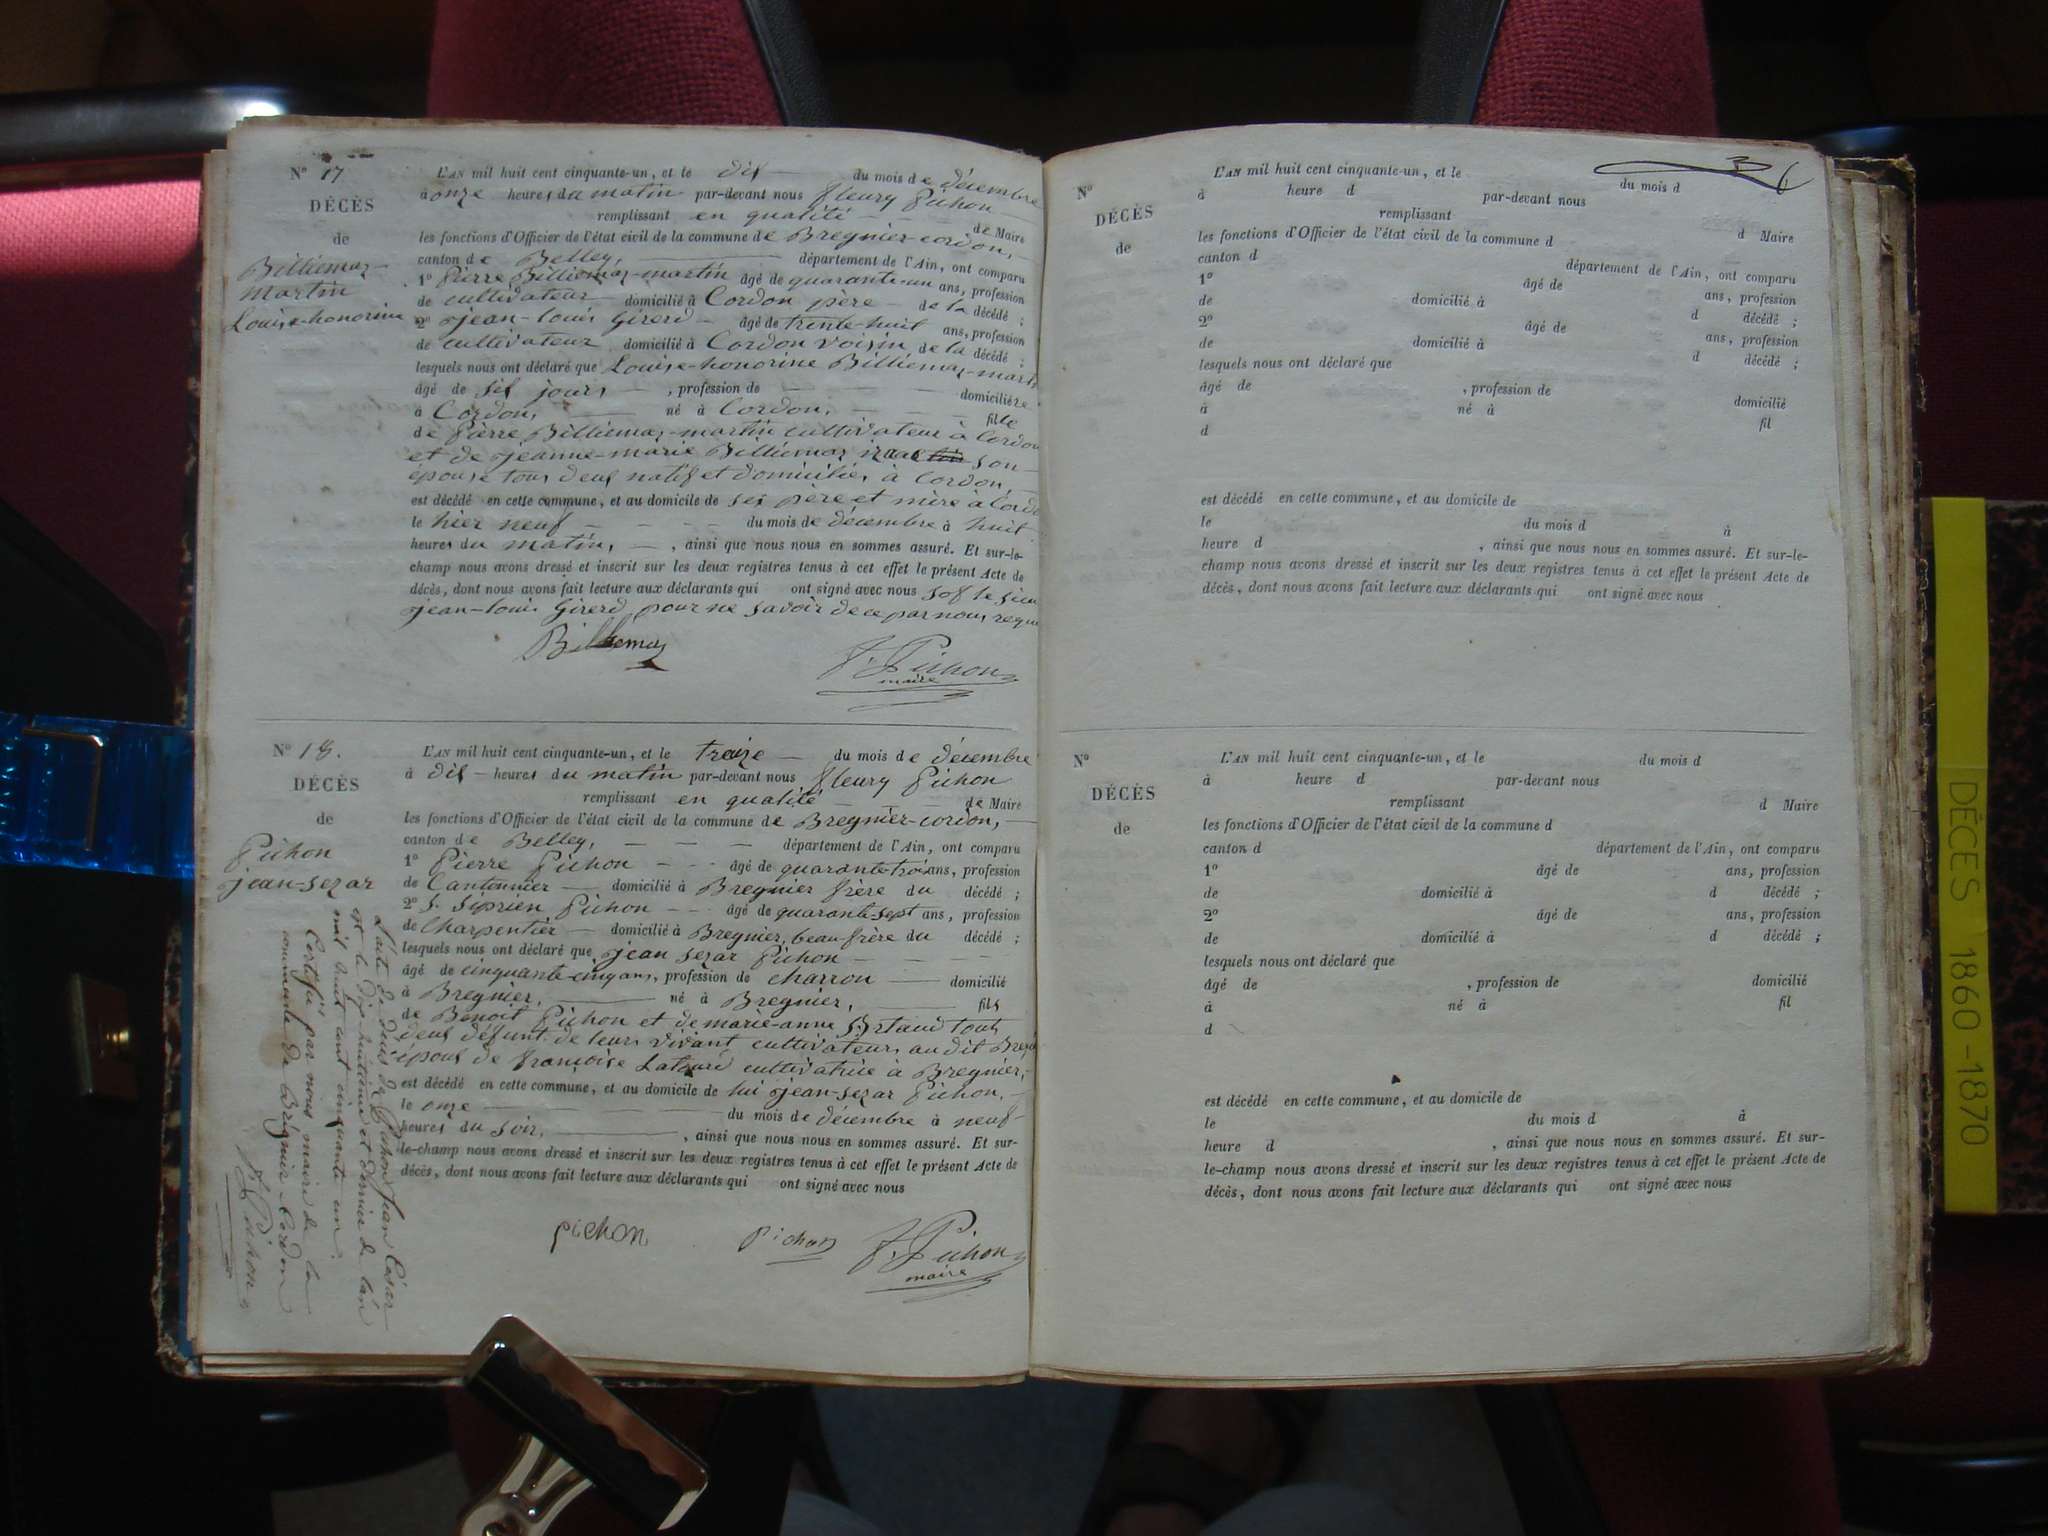 N° 17
DÉCÈS
de
Billiemaz-
martin
Louise-honorine
L'AN mil huit cent cinquante-un, et le dix du mois de décembre
à onze heures du matin par-devant nous fleury Pichon
remplissant en qualité de Maire
les fonctions d'Officier de l'état civil de la commune de Bregnier-cordon,
canton de Belley, département de l'Ain, ont comparu
1° Pierre Billiemaz-martin âgé de quarante-un ans, profession
de cultivateur domicilié à Cordon père de la décédé ;
2° jean-louis Girerd âgé de trente-huit ans, profession
de cultivateur domicilié à Cordon voisin de la décédé ;
lesquels nous ont déclaré que Louise-honorine Billiemaz-mart
âgé de six jours , profession de domicilière
à Cordon, né à Cordon, fille
de Pierre Billiemaz-martin cultivateur à Cordon
et de jeanne-marie Billiemaz son
épouse tous deux natif et domiciliés à Cordon
est décédé en cette commune, et au domicile de ses père et mère à Cordo
le hier neuf du mois de décembre à huit
heures du matin, , ainsi que nous nous en sommes assuré. Et sur-le-
champ nous avons dressé et inscrit sur les deux registres tenus à cet effet le présent Acte de
décès, dont nous avons fait lecture aux déclarants qui ont signé avec nous sof le sieu
jean-louis Girerd pour ne savoir de ce par nous requi
Billiemaz
F. Pichon
maire
N° 18.
DÉCÈS
de
Pichon
jean-sezar
L'acte de décès de Pichon Jean César
est le dix-huitième et dernier de l'an
mil huit cent cinquante un.
Certifié par nous maire de la
commune de Brégnier-Cordon
F. Pichon
L'AN mil huit cent cinquante-un, et le treize du mois de décembre
à dix heures du matin par-devant nous fleury Pichon
remplissant en qualité de Maire
les fonctions d'Officier de l'état civil de la commune de Bregnier-cordon,
canton de Belley, département de l'Ain, ont comparu
1° Pierre Pichon âgé de quarante-trois ans, profession
de Cantonnier domicilié à Bregnier frère du décédé ;
2° S. Siprien Pichon âgé de quarante-sept ans, profession
de Charpentier domicilié à Bregnier, beau-frère du décédé ;
lesquels nous ont déclaré que jean sezar Pichon
âgé de cinquante-cinq ans, profession de charron domicilié
à Bregnier, né à Bregnier, fils
de Benoit Pichon et de marie-anne tout
deux défunt de leurs vivant cultivateurs au dit Breg
époux de françoise cultivatrice à Bregnier,
est décédé en cette commune, et au domicile de lui jean-sezar Pichon,
le onze du mois de décembre à neuf
heures du soir, , ainsi que nous nous en sommes assuré. Et sur-
le-champ nous avons dressé et inscrit sur les deux registres tenus à cet effet le présent Acte de
décès, dont nous avons fait lecture aux déclarants qui ont signé avec nous
pichon Pichon F. Pichon
maire
N°
DÉCÈS
de
L'AN mil huit cent cinquante-un, et le du mois d
à heure d par-devant nous
remplissant d Maire
les fonctions d'Officier de l'état civil de la commune d
canton d département de l'Ain, ont comparu
1° âgé de ans, profession
de domicilié à d décédé ;
2° âgé de ans, profession
de domicilié à d décédé ;
lesquels nous ont déclaré que
âgé de , profession de domicilié
à né à fil
d
est décédé en cette commune, et au domicile de
le du mois d à
heure d , ainsi que nous nous en sommes assuré. Et sur-le-
champ nous avons dressé et inscrit sur les deux registres tenus à cet effet le présent Acte de
décès, dont nous avons fait lecture aux déclarants qui ont signé avec nous
N°
DÉCÈS
de
L'AN mil huit cent cinquante-un, et le du mois d
à heure d par-devant nous
remplissant d Maire
les fonctions d'Officier de l'état civil de la commune d
canton d département de l'Ain, ont comparu
1° âgé de ans, profession
de domicilié à d décédé ;
2° âgé de ans, profession
de domicilié à d décédé ;
lesquels nous ont déclaré que
âgé de , profession de domicilié
à né à fil
d
est décédé en cette commune, et au domicile de
le du mois d à
heure d , ainsi que nous nous en sommes assuré. Et sur-
le-champ nous avons dressé et inscrit sur les deux registres tenus à cet effet le présent Acte de
décès, dont nous avons fait lecture aux déclarants qui ont signé avec nous
DÉCES 1860-1870